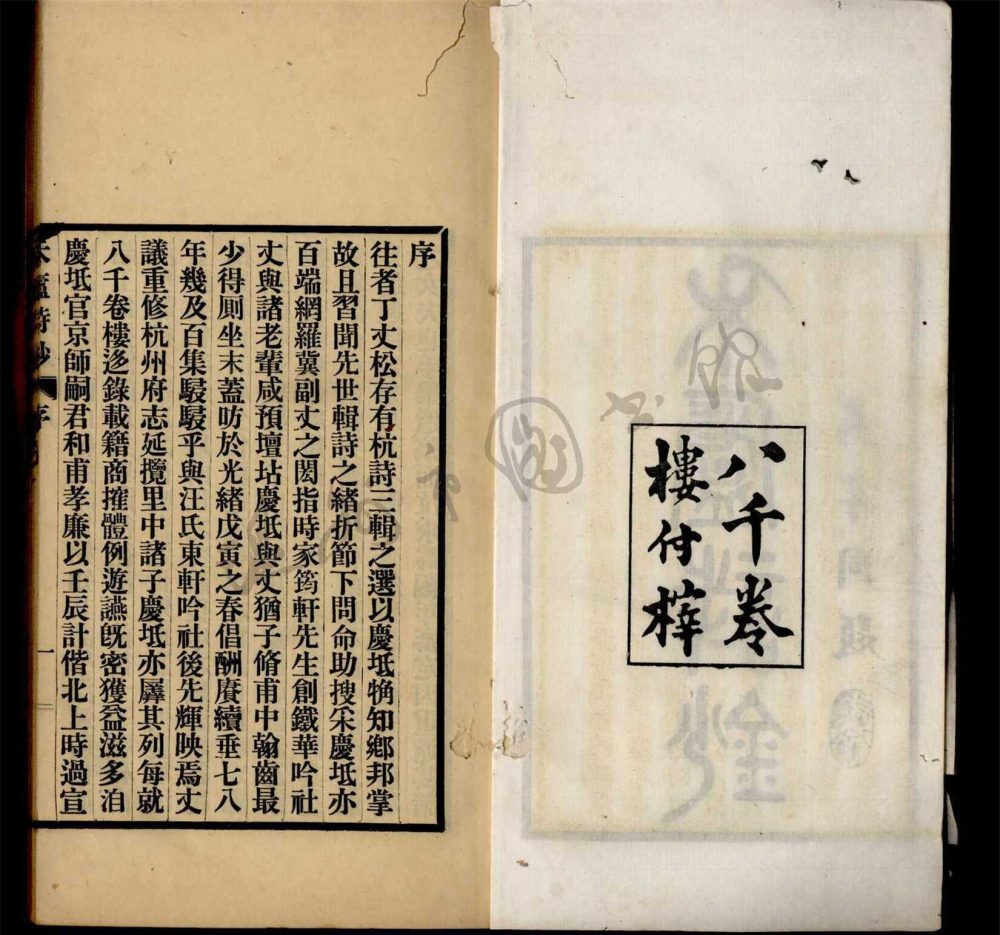 八千卷
樓付梓
序
往者丁丈松存有杭詩三輯之選以慶坻觕知鄉邦掌
故且習聞先世輯詩之緒折節下問命助搜采慶坻亦
百端網羅冀副丈之閎指時家筠軒先生創鐵華吟社
丈與諸老輩咸預壇坫慶坻與丈猶子脩甫中翰齒最
少得厠坐末蓋昉於光緒戊寅之春倡酬賡續垂七八
年幾及百集駸駸乎與汪氏東軒吟社後先輝映焉丈
議重修杭州府志延攬里中諸子慶坻亦厲其列每就
八千卷樓迻錄載籍商搉體例遊讌旣密獲益滋多洎
慶坻官京師嗣君和甫孝廉以壬辰計偕北上時過宣
詩鈔 序 一